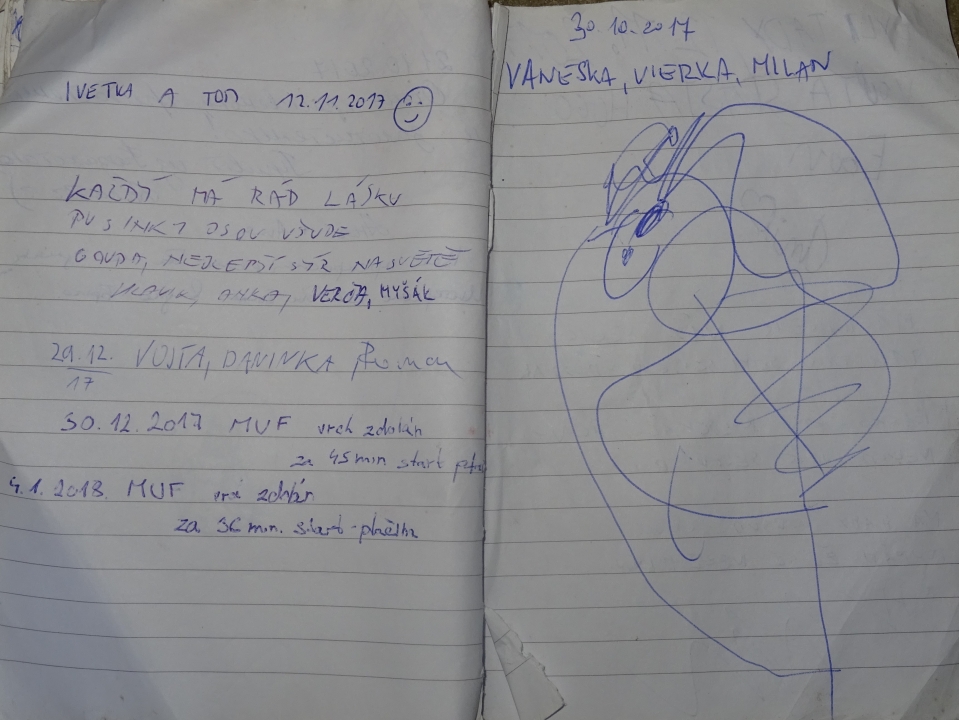 IVETKA A TOM 12.11.2017
KAŽDÝ MÁ RÁD LÁSKU
PUSINKY JSOU VŠUDE
GOUDA, NEJLEPŠÍ SÝR NA SVĚTĚ
VERČA, MYŠÁK
29.12. VOJTA, DANINKA Roman
17
30.12.2017 MUF vrch zdolán
za 45 min. start
4.1.2018 MUF vrch zdolán
za 36 min. start -
30.10.2017
VANESKA, VIERKA, MILAN